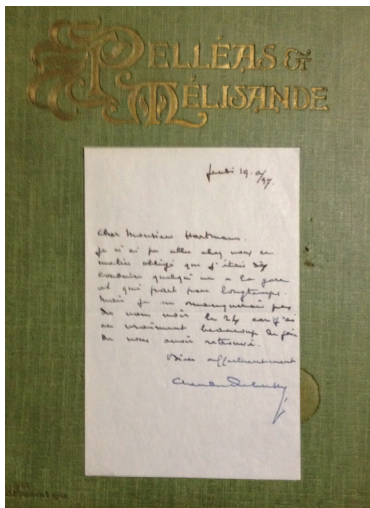 PELLÉAS &
MÉLISANDE
Jeudi 19
/97.
Cher Monsieur Hartmann.
Je n'ai pu aller chez vous ce
matin obligé que j'étais de
conduire quelqu'un à la gare
et qui part pour longtemps.
Mais je ne manquerai pas
de vous voir le 24 car j'ai
eu vraiment beaucoup de joie
de vous avoir retrouvé.
Bien affectueusement
Claude Debussy